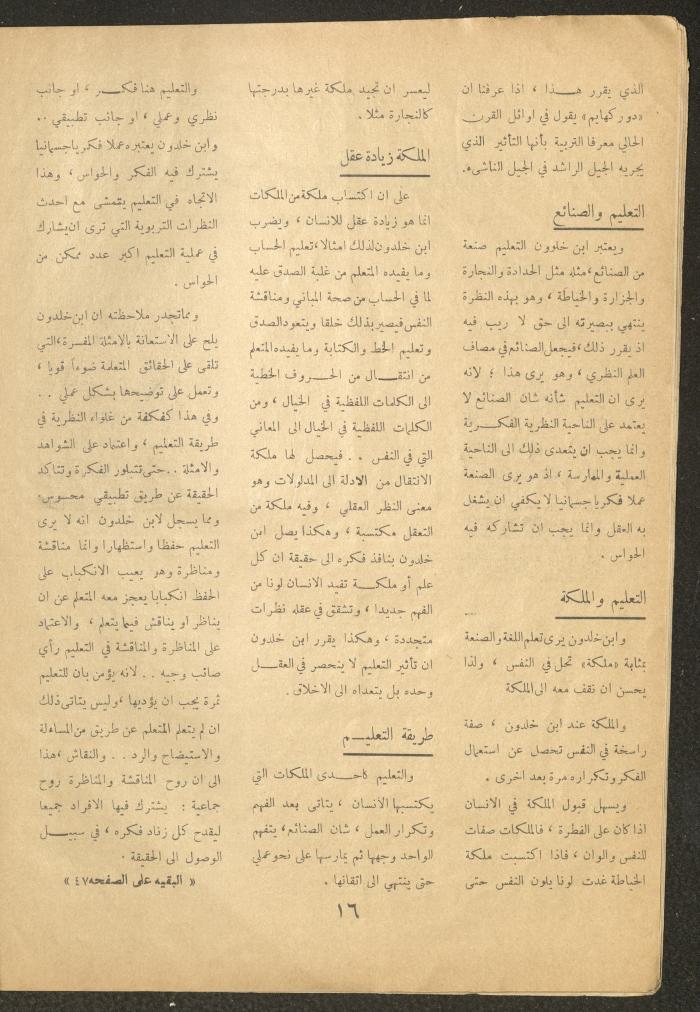 الذي يقرر هـــذا ، اذا عرفنا ان
«دور كهايم» يقول في اوائل القرن
الحالي معرفا التربية بأنها التأثير الذي
يجريه الجيل الراشد في الجيل الناشىء.
التعليم والصنائع
ويعتبر ابن خلوون التعليم صنعة
من الصنائع،مثله مثل الحدادة والنجارة
والجزارة والخياطة ، وهو بهذه النظرة
ينتهي ببصيرته الى حق لا ريب فيه
اذ يقرر ذلك،فيجعل الصنائع في مصاف
العلم النظري ، وهو يرى هذا ؛ لانه
يرى ان التعليم شأنه شان الصنائع لا
يعتمد على الناحية النظرية الفكـــرية
وانما يجب ان يتعدى ذلك الى الناحية
العملية والممارسة ، اذ هو يرى الصنعة
عملا فكريا جسمانيا لا يكفي ان يشغل
به العقل وانما يجب ان تشاركه فيه
الحواس .
التعليم والملكة
وابن خلدون يرى تعلم اللغة والصنعة
بمثابة «ملكة» تحل في النفس ، ولذا
يحسن ان نقف معه الى الملكة
والملكة عند ابن خلدون ، صفة
راسخة في النفس تحصل عن استعمال
الفكر وتكراره مرة بعد اخرى .
ويسهل قبول الملكة في الانسان
اذا كان على الفطرة ، فالملكات صفات
للنفس والوان ، فاذا اكتسبت ملكة
الخياطة غدت لونا يلون النفس حتى
ليعسر ان تجيد ملكة غيرها بدرجتها
كالنجارة مثلا .
الملكة زيادة عقل
على ان اكتساب ملكة من الملكات
انما هو زيادة عقل للانسان ، ويضرب
ابن خلدون لذلك امثالا،تعليم الحساب
وما يفيده المتعلم من غلبة الصدق عليه
لما في الحساب من صحة المباني ومناقشة
النفس فيصير بذلك خلقا ويتعود الصدق
وتعليم الخط والكتابة وما يفيده المتعلم
من انتقـــال من الحـــروف الخطية
الى الكلمات اللفظية في الخيال ، ومن
الكلمات اللفظية في الخيال الى المعاني
التي في النفس . . فيحصل لها ملكة
الانتقال من الادلة الى المدلولات وهو
معنى النظر العقلي ، وفيه ملكة من
التعقل مكتسبة ، وهكذا يصل ابن
خلدون بنافذ فكره الى حقيقة ان كل
علم أو ملكـــة تفيد الانسان لونا من
الفهم جديدا ، وتشقق في عقله نظرات
متجددة ، وهكذا يقرر ابن خلدون
ان تأثير التعليم لا ينحصر في العقـــل
وحده بل يتعداه الى الاخلاق .
طريقة التعليـــم
والتعليم كاحـــدى الملكات التي
يكتسبها الأنسان ، يتاتى بعد الفهم
وتكرار العمل ، شان الصنائع، يتفهم
الواحد وجهها ثم يمارسها على نحو عملي
حتى ينتهي الى اتقانها .
والتعليم هنا فكـــر ، او جانب
نظري وعملي ، او جانب تطبيقي ..
وابن خلدون يعتبره عملا فكريا جسمانيا
يشترك فيه الفكر والحواس ، وهذا
الاتجاه في التعليم يتمشى مع احدث
النظرات التربوية التي ترى ان يشارك
في عملية التعليم اكبر عدد ممكن من
الحواس .
ومما تجدر ملاحظته ان ابن خلدون
يلح على الاستعانة بالامثلة المفسرة،التي
تلقى على الحقائق المتعلمة ضوءاً قويا ،
وتعمل على توضيحها بشكل عملي . .
وفي هذا كفكفة من غلواء النظرية في
طريقة التعليم ، واعتماد على الشواهد
والامثلة ..حتى تتبلور الفكرة وتتاكد
الحقيقة عن طريق تطبيقي محسوس.
ومما يسجل لابن خلدون انه لا يرى
التعليم حفظا واستظهارا وانما مناقشة
ومناظرة وهو يعيب الانكباب على
الحفظ انكبابا يعجز معه المتعلم عن ان
يناظر او يناقش فيما يتعلم ، والاعتماد
على المناظرة والمناقشة في التعليم رأي
صائب وجيه . . لانه يؤمن بان للتعليم
ثمرة يجب ان يؤديها ،وليس يتاتى ذلك
ان لم يتعلم المتعلم عن طريق من المساءلة
والاستيضاح والرد . . والنقاش ،هذا
الى ان روح المناقشة والمناظرة روح
جماعية : يشترك فيها الافراد جميعا
ليقدح كل زناد فكره ، في سبيـــل
الوصول الى الحقيقة .
« البقيه على الصفحه ٤٧ »
١٦